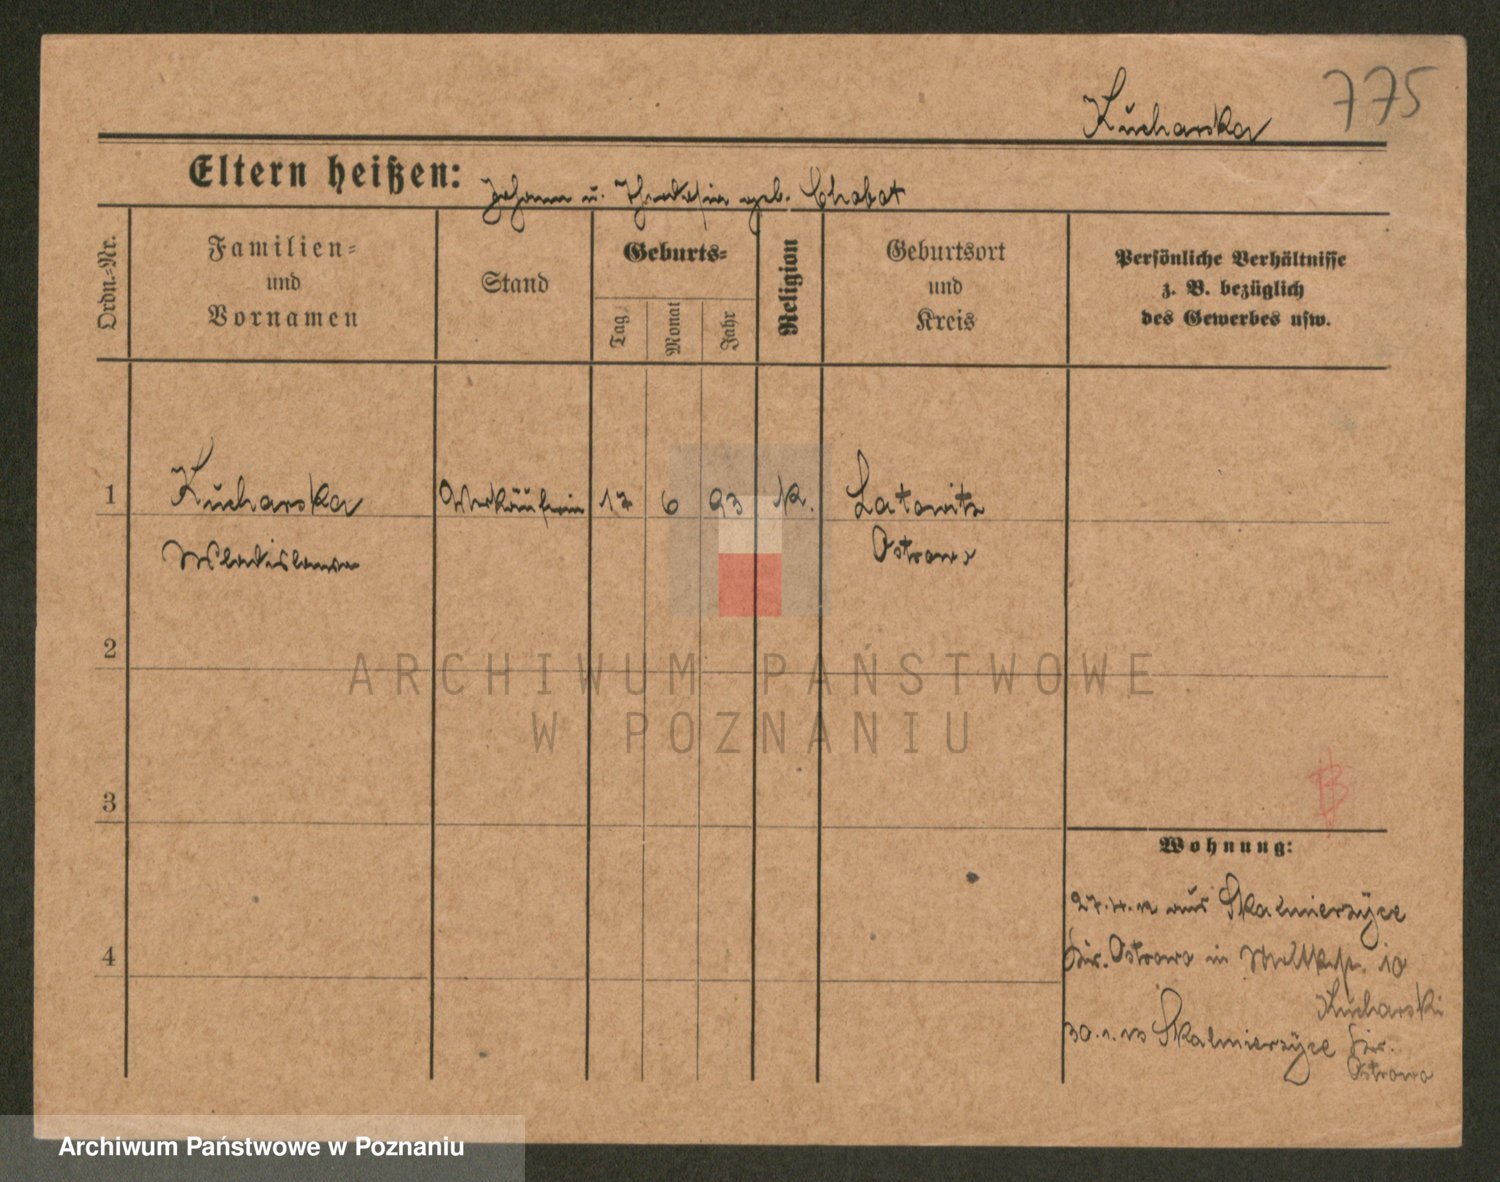 Kucharska 775
Eltern heißen: Johann u. geb. Chabot
Ordn.-Nr.
Familien-
und
Vornamen
Stand
Geburts-
Tag
Monat
Jahr
Religion
Geburtsort
und
Kreis
Persönliche Verhältnisse
z. B. bezüglich
des Gewerbes usw.
1 Kucharska Verkäuferin 17 6 93 k. Latowitz
Wladislawa Ostrowo
2
3
4
Wohnung:
27.4.12 aus Skalmierzyce
Kr. Ostrowo in 10
Kucharski
30.1.13 Skalmierzyce Kr.
Ostrowo
ARCHIWUM PAŃSTWOWE
W POZNANIU
Archiwum Państwowe w Poznaniu